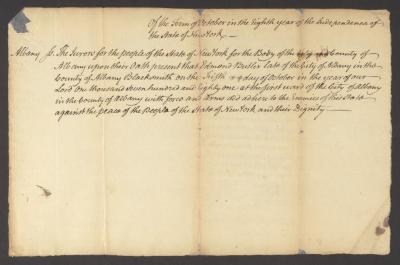 Of the Term of October in the Eighth year of the Independence of
the State of New York —
Albany Ss. The Jurors for the people of the State of New York for the Body of the County of
Albany upon their Oath present that Edmond Butler late of the City of Albany in the
County of Albany Blacksmith on the fifth day of October in the year of our
Lord One thousand seven hundred and Eighty one at the first ward of the City of Albany
in the County of Albany with force and Arms did adhere to the Enemies of this State
against the peace of the People of the State of New York and their Dignity —